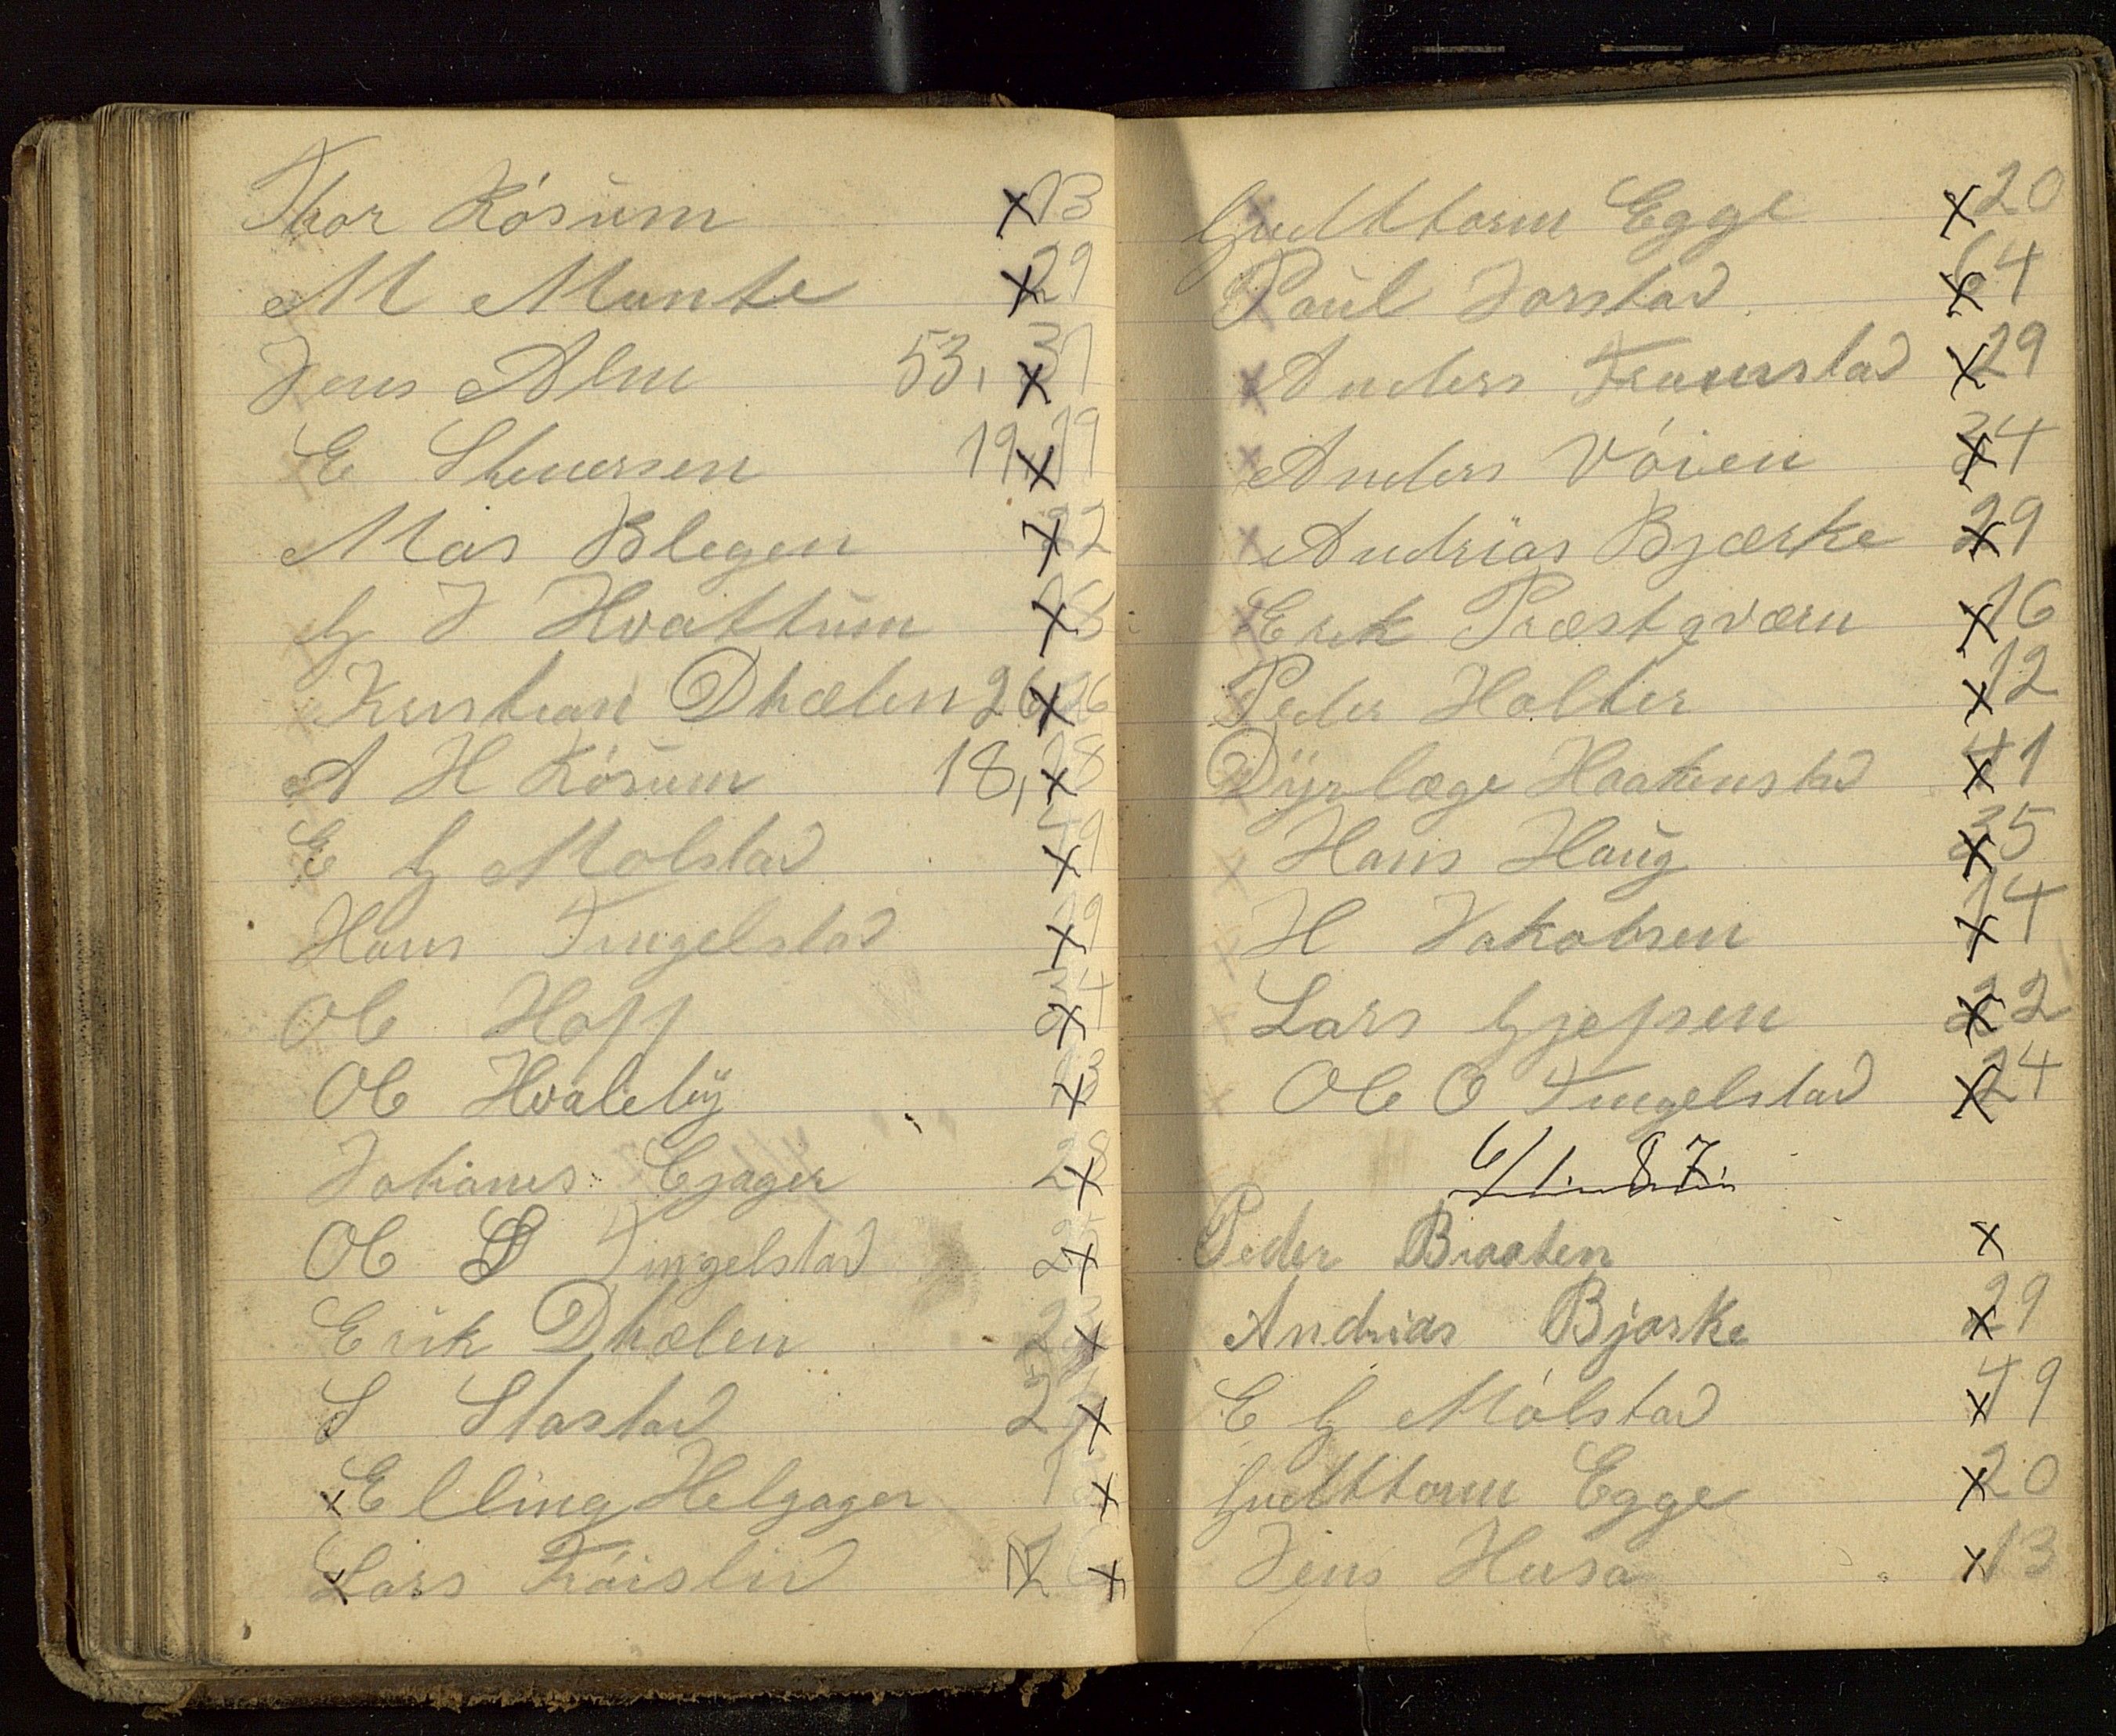 Thor Kósum x13
M Munte x29
Jens Alm 53, x37
E Stenersen 19, x19
Mas Blegen x22
G J Hvattum x8
Kristian Dhælen 26 x26
A H Kósum 18, x18
E G Molstad x9
Hans Tingelstad x9
Ole Hoff x4
Ole Hvaleby x3
Johanes Egager 2x8
Ole S Tingelstad 2x5
Erik Dhælen 2x
S Stastad 2x
xElling Helgager 1x
xLars Fróislid 12x
Gudttorm Egge x20
Paul Jorstad x64
x Anders Framstad x29
x Anders Vóien x34
x Andrias Bjærke x29
x Erik Præstqværn x16
Peder Holter x12
Dyrlæge Haakenstad x41
x Hans Haug x35
x H Jakobsen x14
x Lars Gjefsen x22
x Ole O Tingelstad x24
6/1. 87.
Peder Braaten x
Andrias Bjørke x29
E G Mólstad x49
Gudttorm Egge x20
Jens Husa x13